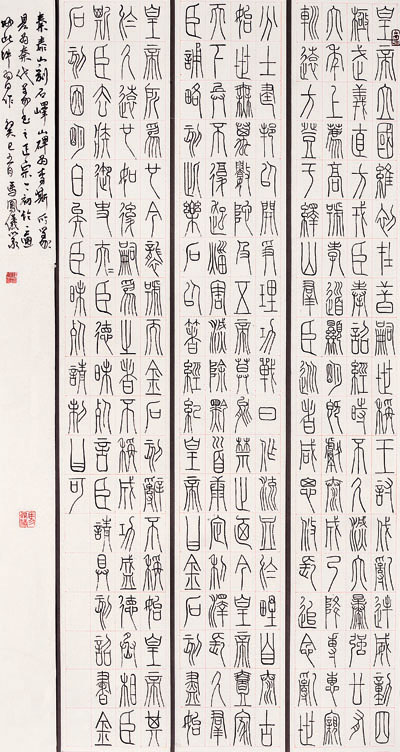 皇帝立國維初在昔嗣世稱王討伐亂逆威動四
極武義直方戎臣奉詔經時不久滅六暴強廿有
六年上薦高號孝道顯明既獻泰成乃降專惠親
巡遠方登于繹山群臣從者咸思攸長追念亂世
分土建邦以開爭理功戰日作流血於野自泰古
始世無萬數陀及五帝莫能禁止迺今皇帝壹家
天下兵不復起災害滅除黔首康定利澤長久群
臣誦略刻此樂石以著經紀皇帝曰金石刻盡始
皇帝所為也今襲號而金石刻辭不稱始皇帝其
於久遠也如後嗣為之者不稱成功盛德丞相臣
斯臣去疾御史夫=臣德昧死言臣請具刻詔書金
石刻因明白矣臣昧死請制曰可
秦泰山刻石嶧山碑為李斯所篆
秦代篆書之正宗
習作 癸巳五月馬